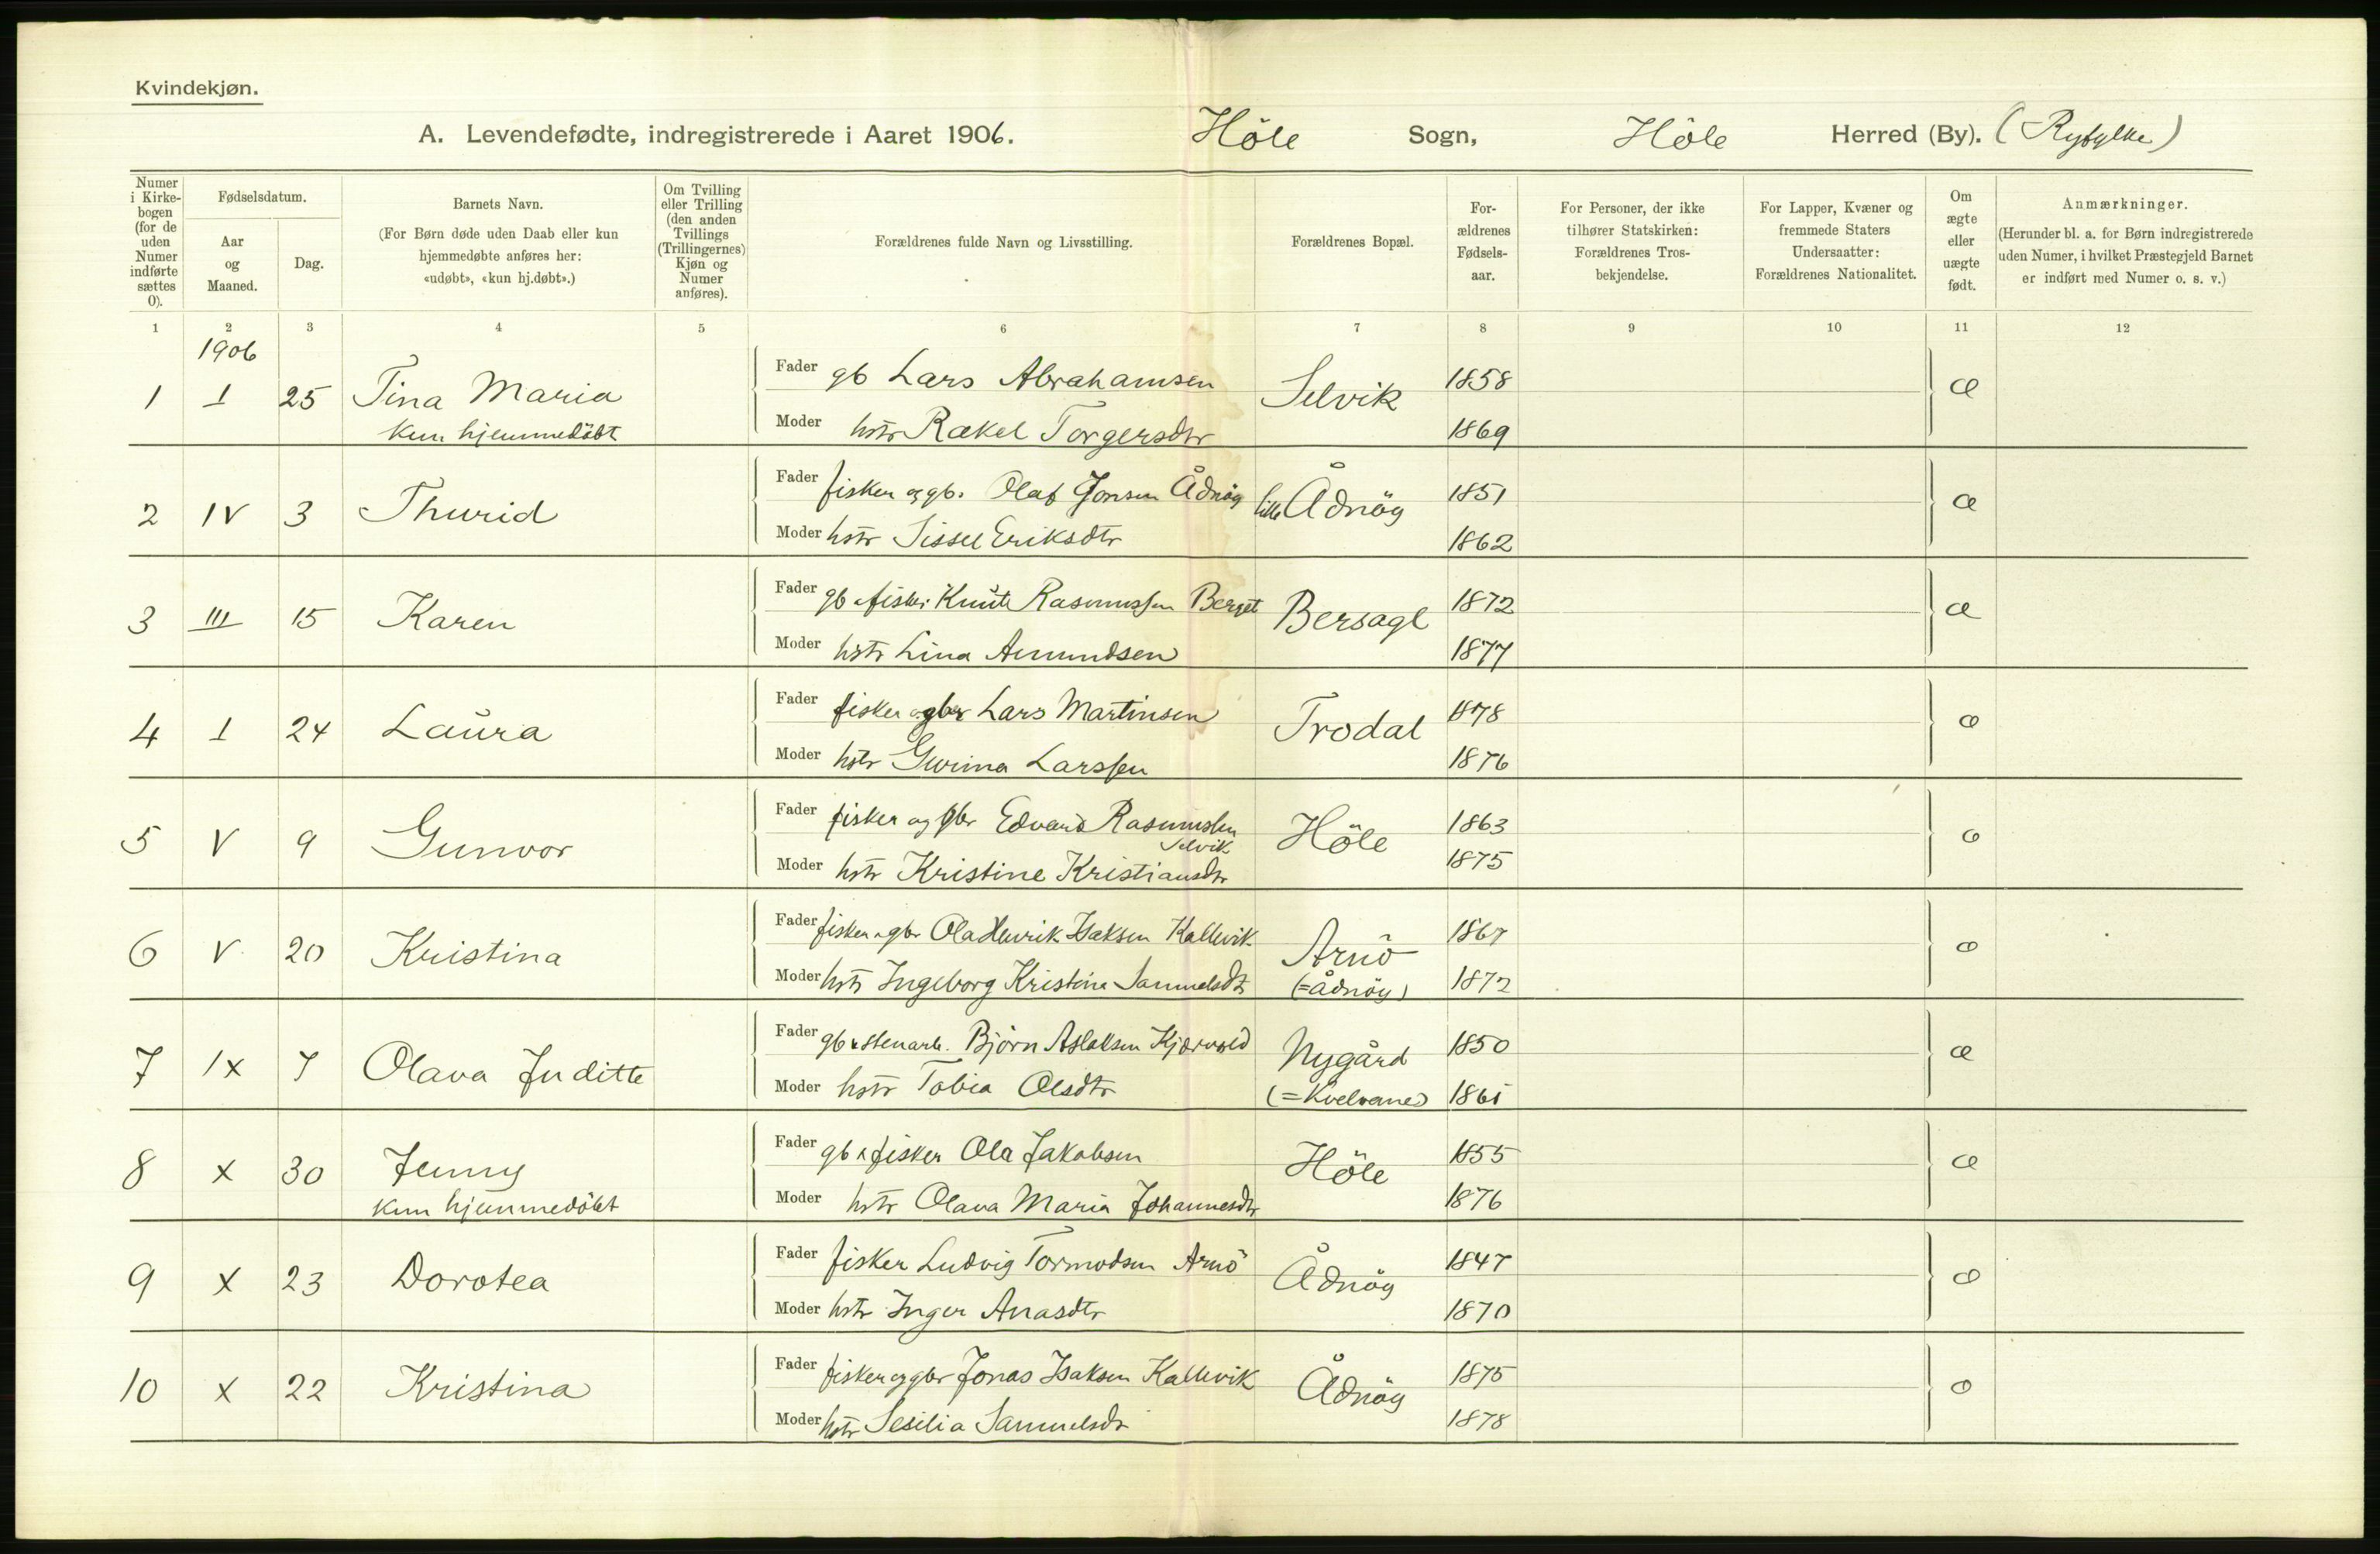 Kvindekjøn.
A. Levendefødte, indregistrerede i Aaret 1906. Höle Sogn, Höle Herred (By). (Ryfylke)
Numer i Kirkebogen (for de uden Numer indførte sættes 0).
Fødselsdatum.
Aar og Maaned.
Dag.
Barnets Navn.
(For Børn døde uden Daab eller kun hjemmedøbte anføres her: «udøbt», «kun hj.døbt».)
Om Tvilling eller Trilling (den anden Tvillings (Trillingernes) Kjøn og Numer anføres).
Forældrenes fulde Navn og Livsstilling.
Forældrenes Bopæl.
Forældrenes Fødselsaar.
For Personer, der ikke tilhører Statskirken: Forældrenes Trosbekjendelse.
For Lapper, Kvæner og fremmede Staters Undersaatter: Forældrenes Nationalitet.
Om ægte eller uægte født.
Anmærkninger.
(Herunder bl. a. for Børn indregistrerede uden Numer, i hvilket Præstegjeld Barnet er indført med Numer o. s. v.)
1 2 3 4 5 6 7 8 9 10 11 12
1906
1 I 25 Tina Maria
kun hjemmedöbt
Fader gb Lars Abrahamsen Selvik 1858 æ
Moder hstr Rakel Torgersdtr 1869
2 IV 3 Thurid
Fader fisker og gb. Olaf Jonsen Ådnög lille Ådnög 1851 æ
Moder hstr Sissel Eriksdtr 1862
3 III 15 Karen
Fader gb & fisker Knut Rasmussen Berget Bersagl 1872 æ
Moder hstr Lina Amundsen 1877
4 I 24 Laura
Fader fisker og gbr Lars Martinsen Trodal 1878 æ
Moder hstr Gurina Larssen 1876
5 V 9 Gunvor
Fader fisker og gbr Edvard Rasmussen Selvik Höle 1863 æ
Moder hstr Kristine Kristiansdtr 1875
6 V 20 Kristina
Fader fisker & gbr Ola Henrik Isaksen Kallevik Arnö 1867 æ
Moder hstr Ingeborg Kristina Samuelsdt (=Ådnög) 1872
7 IX 7 Olava Juditte
Fader gb & stenarb. Björn Aslaksen Kjærvold Nygård 1850 æ
Moder hstr Tobia Olsdtr 1861
8 X 30 Jenny
kun hjemmedöbt
Fader gb & fisker Ola Jakobsen Höle 1855 æ
Moder hstr Olava Maria Johannesdtr 1876
9 X 23 Dorotea
Fader fisker Ludvig Tormodsen Arnö Ådnög 1847 æ
Moder hstr Inger Anasdtr 1870
10 X 22 Kristina
Fader fisker og gbr Jonas Isaksen Kallevik Ådnög 1875 æ
Moder hstr Sesilia Samuelsdr 1878